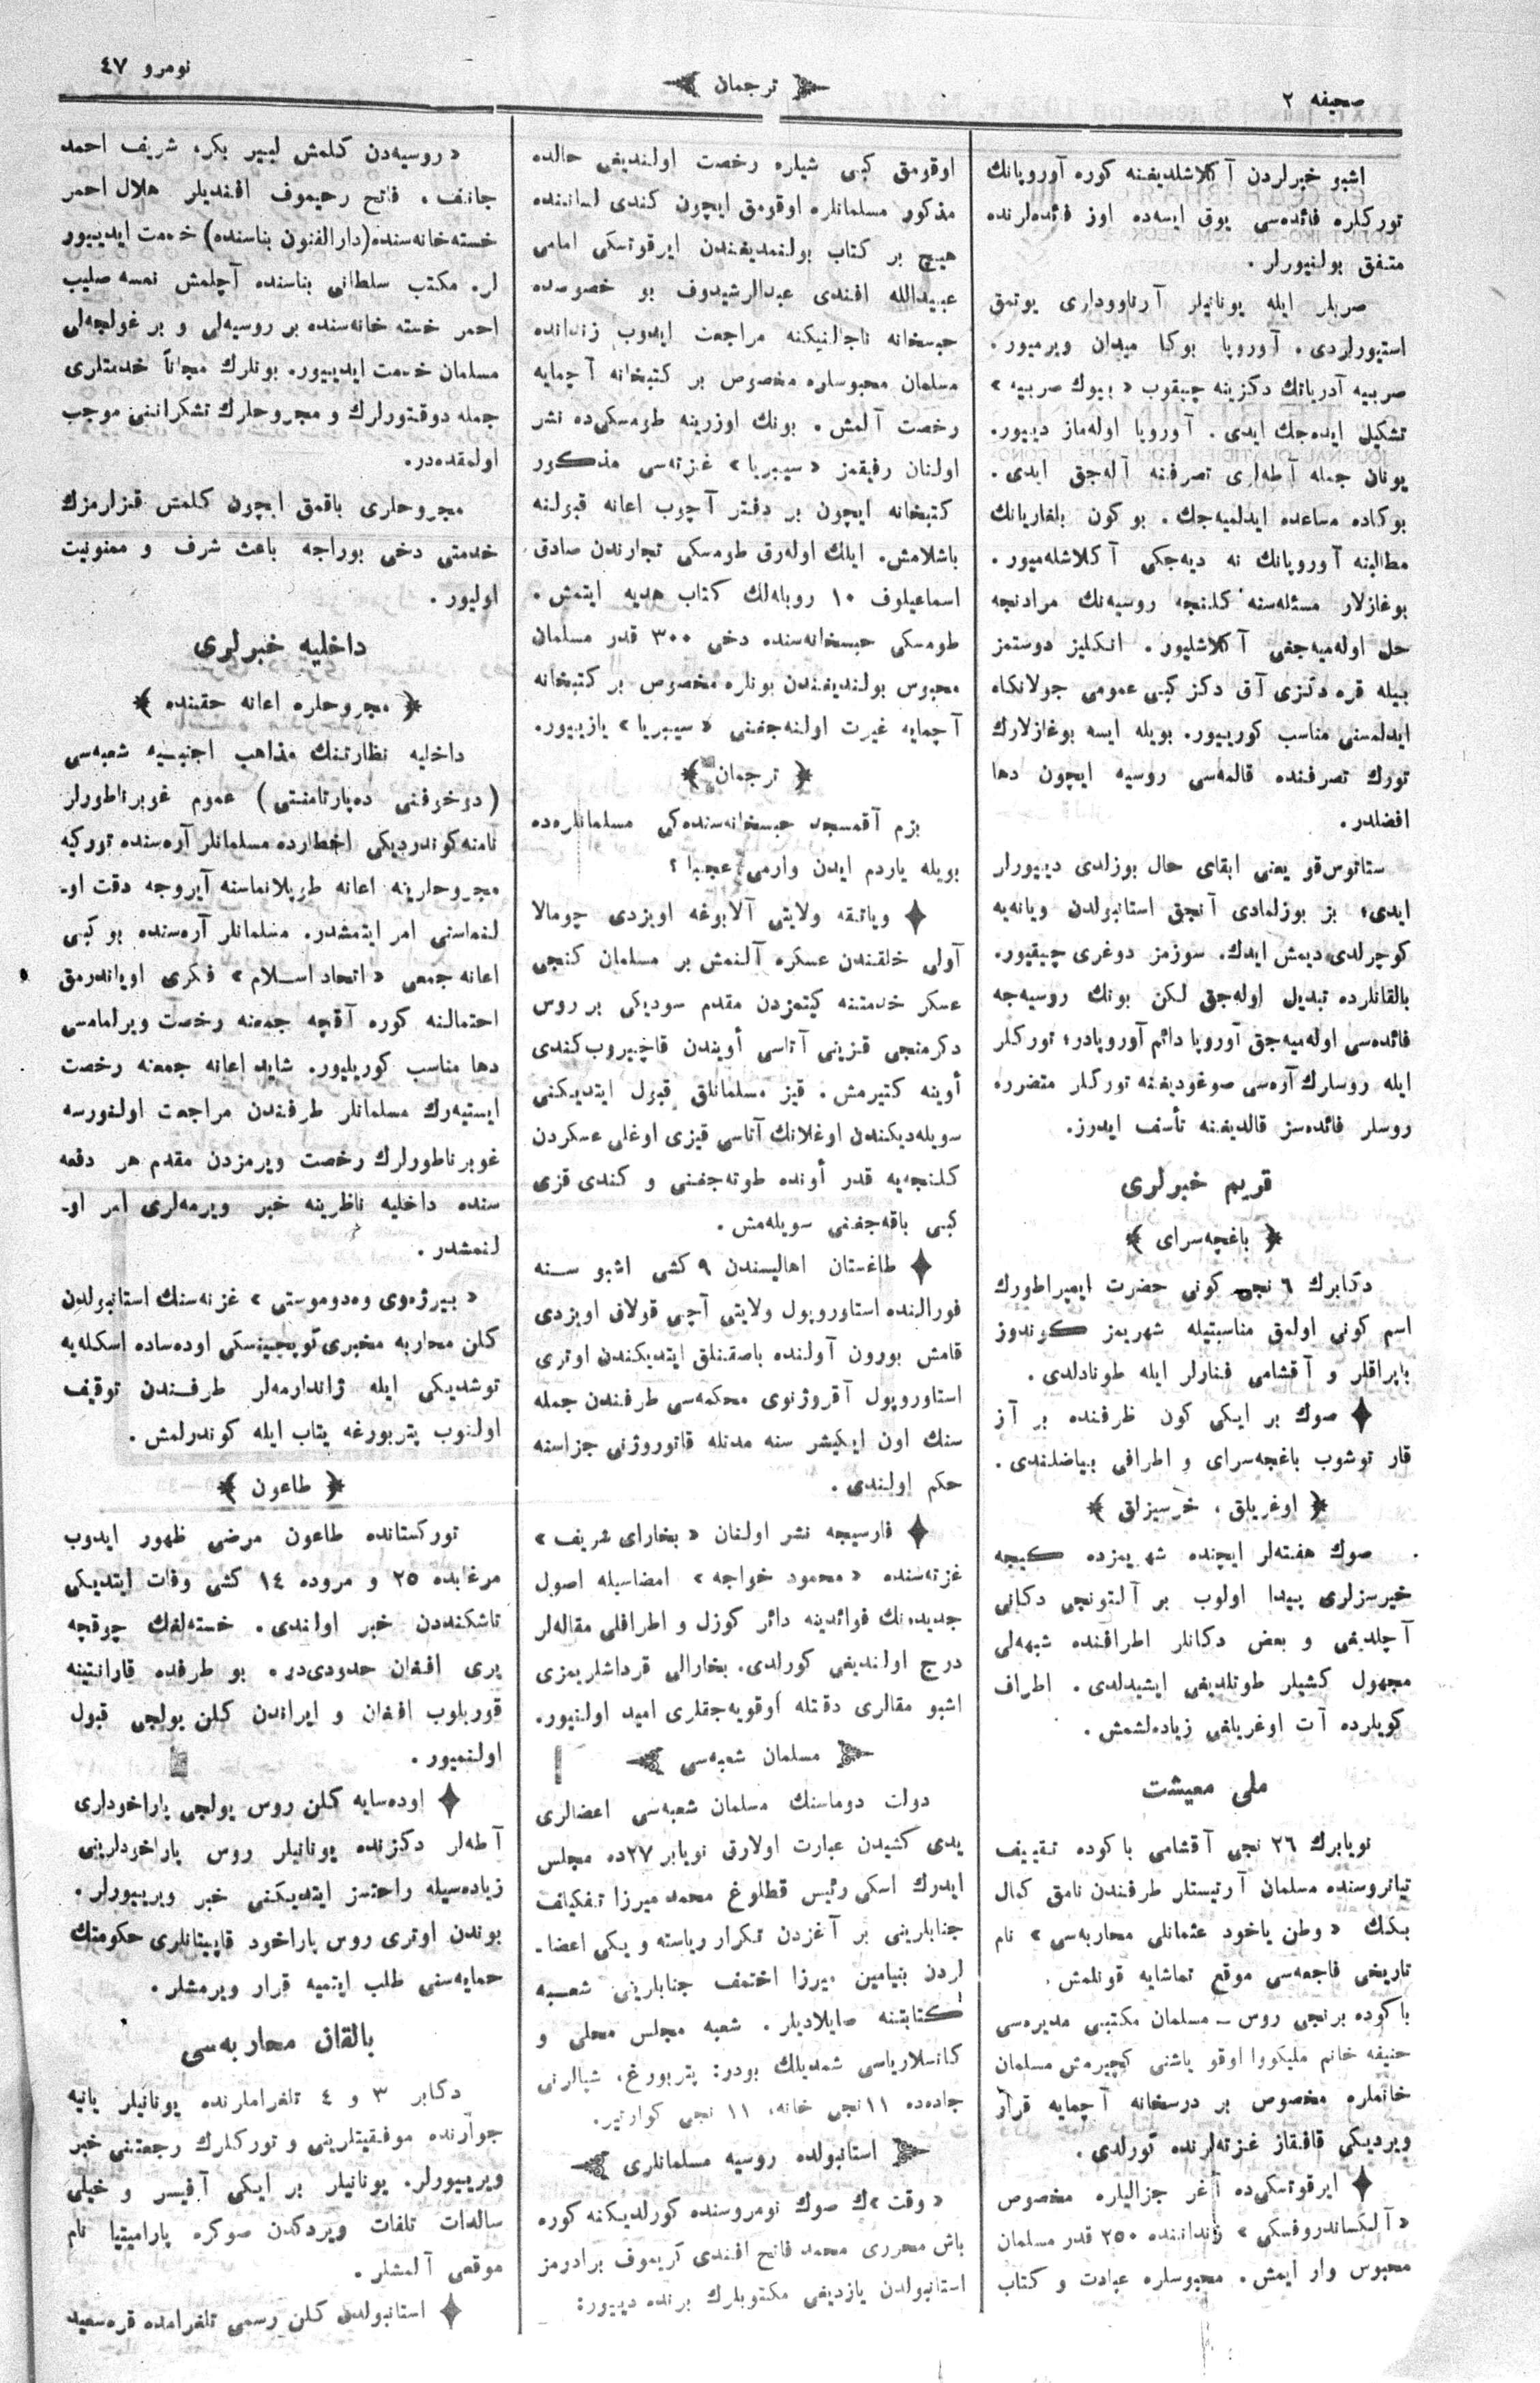 صحیفه ٢
ترجمان
نومرو ٤٧
اشبو خبرلردن آکلاشلدیغنه کوره آوروپانك
تورکلره فائده‌سی یوق ایسه‌ده اوز فائده‌لرنده
متفق بولنیورلر.
صربلر ایله یونانیلر آرناوودلری یوتمق
استیورلردی. آوروپا بوکا میدان ویرمیور.
صربیه آدریاتك دکزینه چیقوب « بیوك صربیه »
تشکیل ایده‌جك ایدی. آوروپا اوله‌ماز دییور.
یونان جمله آطه‌لری تصرفنه آله‌جق ایدی.
بوکاده مساعده ایدلمیه‌جك. بو کون بلغاریانك
مطالبنه آوروپانك نه دیه‌جکی آکلاشله‌میور.
بوغازلار مسئله‌سنه کلنجه روسیه‌نك مرادنجه
حل اوله‌میه‌جغی آکلاشلیور. انکلیز دوستمز
بیله قره دکزی آق دکز کبی عمومی جولانکاه
ایدلمسنی مناسب کورییور. بویله ایسه بوغازلارك
تورك تصرفنده قالمه‌سی روسیه ایچون دها
افضلدر.
ستاتوس‌قو یعنی ابقای حال بوزلدی دییورلر
ایدی؛ بز بوزلمادی آنجق استانبولدن ویانه‌یه
کوچرلدی دیمش ایدك. سوزمز دوغری چیقیور.
بالقانلرده تبدیل اوله‌جق لکن بونك روسیه‌جه
فائده‌سی اوله‌میه‌جق آوروپا دائم آوروپادر؛ تورکلر
ایله روسلرك آره‌سی صوغودیغنه تورکلر متضرره
روسلر فائده‌سز قالدیغنه تأسف ایدرز.
قریم خبرلری
﴿ باغچه‌سرای ﴾
دکابرك ٦ نجی کونی حضرت ایمپراطورك
اسم کونی اولمق مناسبتیله شهریمز کوندوز
بایراقلر و آقشامی فنارلر ایله طونادلدی.
صوك بر ایکی کون ظرفنده بر آز
قار توشوب باغچه‌سرای و اطرافی بیاضلندی.
﴿ اوغریلق، خرسیزلق ﴾
صوك هفته‌لر ایچنده شهریمزده کیجه
خیرسزلری پیدا اولوب بر آلتونجی دکانی
آچلدیغی و بعض دکانلر اطرافنده شبهه‌لی
مجهول کشیلر طوتلدیغی ایشیدلدی. اطراف
کویلرده آت اوغریلغی زیاده‌لشمش.
ملی معیشت
نویابرك ٢٦ نجی آقشامی باکوده تقییف
تیاتروسنده مسلمان آرتیستلر طرفندن نامق کمال
بکك « وطن یاخود عثمانلی محاربه‌سی » نام
تاریخی فاجعه‌سی موقع تماشایه قونلمش.
باکوده برنجی روس ـ مسلمان مکتبی مدیره‌سی
حنیفه خانم ملیکووا اوقو یاشنی کچیرمش مسلمان
خانملره مخصوص بر درسخانه آچمایه قرار
ویردیکی قافقاز غزته‌لرنده کورلدی.
ایرقوتسکی‌ده آغر جزالیلره مخصوص
« آلکساندروفسکی » زنداننده ٢٥٠ قدر مسلمان
محبوس وار ایمش. محبوسلره عبادت و کتاب
اوقومق کبی شیلره رخصت اولندیغی حالده
مذکور مسلمانلره اوقومق ایچون کندی لساننده
هیچ بر کتاب بولنمدیغندن ایرقوتسکی امامی
عبیدالله افندی عبدالرشیدوف بو خصوصده
حبسخانه ناچالنیکنه مراجعت ایدوب زندانده
مسلمان محبوسلره مخصوص بر کتبخانه آچمایه
رخصت آلمش. بونك اوزرینه طومسکی‌ده نشر
اولنان رفیقمز « سیبریا » غزته‌سی مذکور
کتبخانه ایچون بر دفتر آچوب اعانه قبولنه
باشلامش. ایلك اوله‌رق طومسکی تجارندن صادق
اسماعیلوف ١٠ روبله‌لك کتاب هدیه ایتمش.
طومسکی حبسخانه‌سنده دخی ٣٠٠ قدر مسلمان
محبوس بولندیغندن بونلره مخصوص بر کتبخانه
آچمایه غیرت اولنه‌جغنی « سیبریا » یازییور.
﴿ ترجمان ﴾
بزم آقمسجد حبسخانه‌سنده‌کی مسلمانلره‌ده
بویله یاردم ایدن وارمی عجبا؟
ویاتقه ولایتی آلابوغه اویزدی چومالا
آولی خلقندن عسکره آلنمش بر مسلمان کنجی
عسکر خدمتنه کیتمزدن مقدم سودیکی بر روس
دکرمنجی قیزینی آتاسی أویندن قاچیروب کندی
أوینه کتیرمش. قیز مسلمانلق قبول ایتدیکنی
سویله‌دیکندن اوغلانك آتاسی قیزی اوغلی عسکردن
کلنجه‌یه قدر أونده طوته‌جغنی و کندی قزی
کبی باقه‌جغنی سویله‌مش.
طاغستان اهالیسندن ٩ کشی اشبو سنه
فورالنده استاوروپول ولایتی آچی قولاق اویزدی
قامش بورون آولنده باصقنلق ایتدیکندن اوتری
استاوروپول آقروژنوی محکمه‌سی طرفندن جمله
سنك اون ایکیشر سنه مدتله قاتوروژنی جزاسنه
حکم اولندی.
فارسیجه نشر اولنان « بخارای شریف »
غزته‌سنده « محمود خواجه » امضاسیله اصول
جدیده‌نك فوائدینه دائر کوزل و اطرافلی مقاله‌لر
درج اولندیغی کورلدی. بخارالی قرداشلریمزی
اشبو مقالری دقتله اوقویه‌جقلری امید اولنیور.
مسلمان شعبه‌سی
دولت دوماسنك مسلمان شعبه‌سی اعضالری
یدی کشیدن عبارت اولارق نویابر ٢٧ده مجلس
ایدرك اسکی رئیس قطلوغ محمد میرزا تفکیلف
جنابلرینی بر آغزدن تکرار ریاسته و یکی اعضا-
لردن بنیامین میرزا اختمف جنابلرینی شعبه
کتابتنه صایلادیلر. شعبه مجلس محلی و
کانسلاریاسی شمدیلك بودر: پتربورغ،
جاده‌ده ١١ نجی خانه، ١١ نجی کوارتیر.
استانبولده روسیه مسلمانلری
« وقت »ك صوك نومروسنده کورلدیکنه کوره
باش محرری محمد فاتح افندی کریموف برادرمز
استانبولدن یازدیغی مکتوبلرك برنده دییور:
« روسیه‌دن کلمش لبیر بکر، شریف احمد
جانف، فاتح رحیموف افندیلر هلال احمر
خسته‌خانه‌سنده (دارالفنون بناسنده) خدمت ایدییور
لر. مکتب سلطانی بناسنده آچلمش نمسه صلیب
احمر خسته خانه‌سنده بر روسیه‌لی و بر غولچه‌لی
مسلمان خدمت ایدییور. بونلرك مجانآ خدمتلری
جمله دوقتورلرك و مجروحلرك تشکراتنی موجب
اولمقده‌در.
مجروحلری باقمق ایچون کلمش قزلرمزك
خدمتی دخی بوراجه باعث شرف و ممنونیت
اولیور.
داخلیه خبرلری
﴿ مجروحلره اعانه حقنده ﴾
داخلیه نظارتنك مذاهب اجنبیه شعبه‌سی
(دوخوفنی ده‌پارتامنتی) عموم غوبرناطورلر
نامنه کوندردیکی اخطارده مسلمانلر آره‌سنده تورکیه
مجروحلرینه اعانه طوپلانماسنه آیروجه دقت او-
لنماسنی امر ایتمشدر. مسلمانلر آره‌سنده بو کبی
اعانه جمعی « اتحاد اسلام » فکری اویاندرمق
احتمالنه کوره آقچه جمعنه رخصت ویرلمامسی
دها مناسب کوریلیور. شاید اعانه جمعنه رخصت
ایستیه‌رك مسلمانلر طرفندن مراجعت اولنورسه
غوبرناطورلرك رخصت ویرمزدن مقدم هر دفعه
سنده داخلیه ناظرینه خبر ویرمه‌لری امر او-
لنمشدر.
« بیرژه‌وی وه‌دوموستی » غزته‌سنك استانبولدن
کلن محاربه مخبری اوده‌ساده اسکله‌یه
توشدیکی ایله ژاندارمه‌لر طرفندن توقیف
اولنوب پتربورغه یتاب ایله کوندرلمش.
﴿ طاعون ﴾
تورکستانده طاعون مرضی ظهور ایدوب
مرغابده ٢٥ و مروده ١٤ کشی وفات ایتدیکی
تاشکنددن خبر اولندی. خسته‌لغك چوقچه
یری افغان حدودی‌در. بو طرفده قارانتینه
قوریلوب افغان و ایراندن کلن یولجی قبول
اولنمیور.
اوده‌سایه کلن روس یولجی پاراخودلری
آطه‌لر دکزنده یونانیلر روس پاراخودلرینی
زیاده‌سیله راحتسز ایتدیکنی خبر ویرییورلر.
بوندن اوتری روس پاراخود قاپیتانلری حکومتك
حمایه‌سنی طلب ایتمیه قرار ویرمشلر.
بالقان محاربه‌سی
دکابر ٣ و ٤ تلغراملرنده یونانیلر یانیه
جوارنده موفقیتلرینی و تورکلرك رجعتنی خبر
ویرییورلر. یونانیلر بر ایکی آفیسر و خیلی
سالدات تلفات ویردکدن صوکره پارامیتیا نام
موقعی آلمشلر.
استانبولدن کلن رسمی تلغرامده قره‌سعید